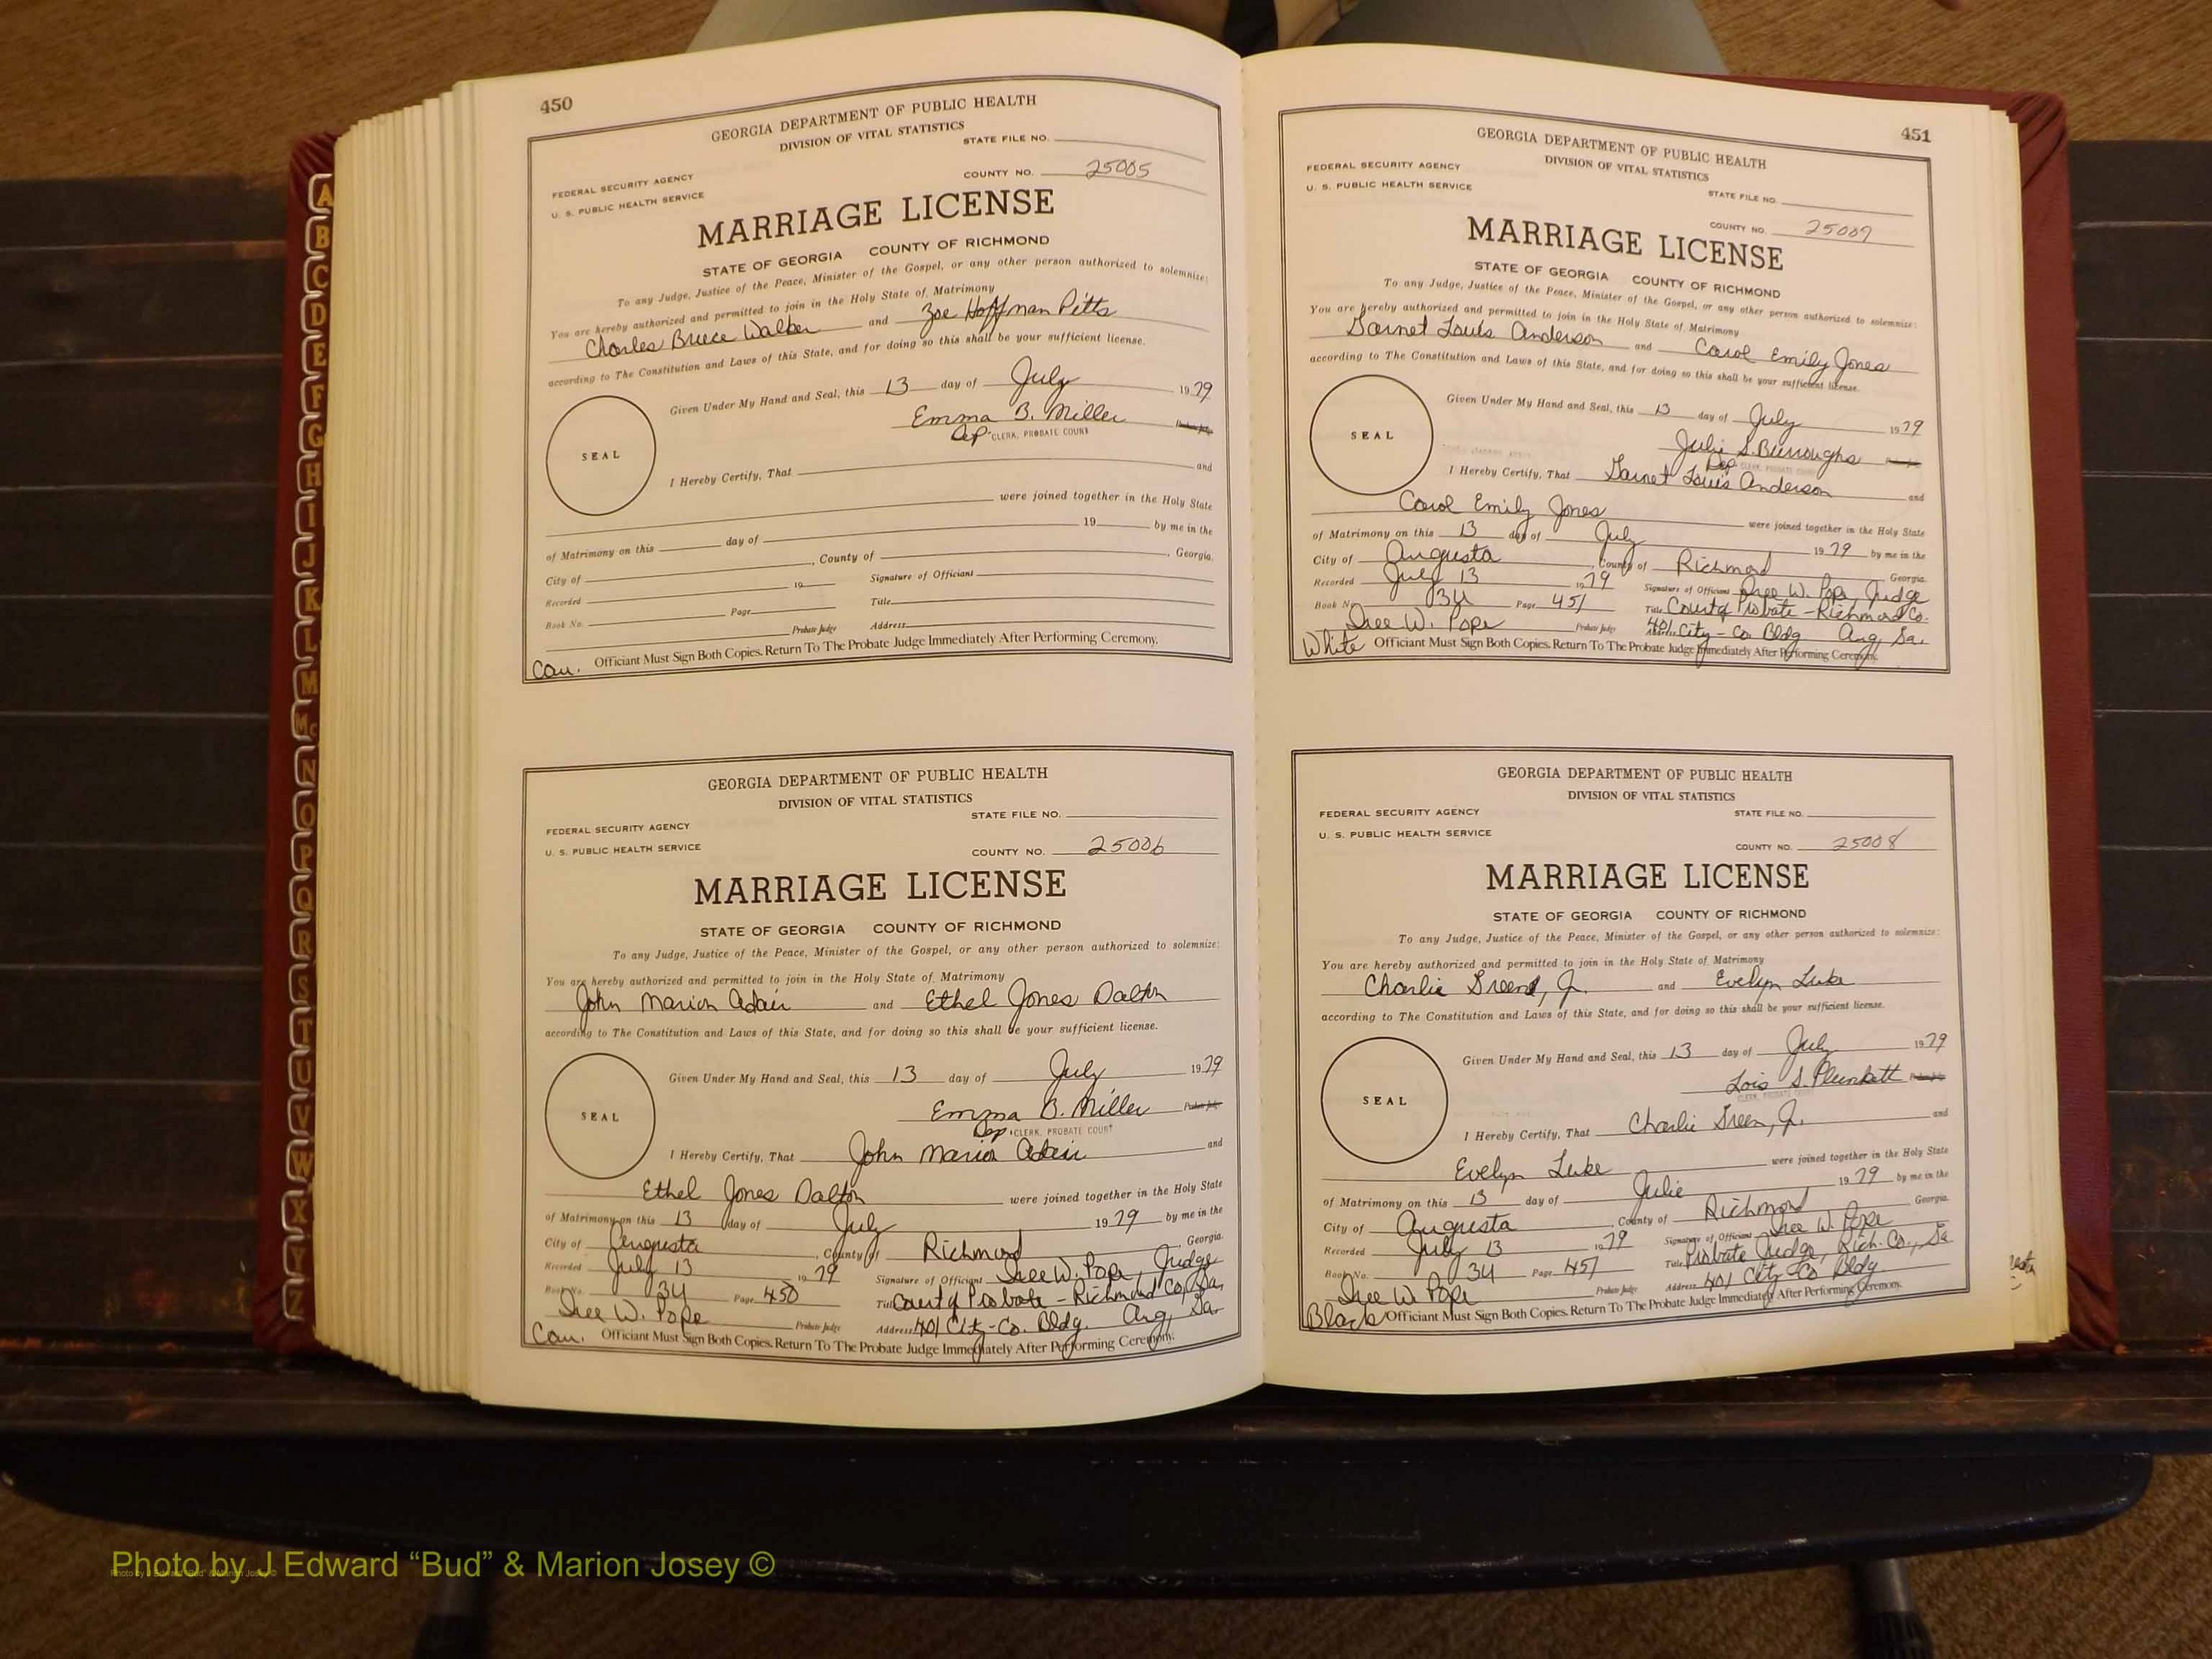 450
GEORGIA DEPARTMENT OF PUBLIC HEALTH
DIVISION OF VITAL STATISTICS
STATE FILE NO.
FEDERAL SECURITY AGENCY
U. S. PUBLIC HEALTH SERVICE
COUNTY NO. 25005
MARRIAGE LICENSE
STATE OF GEORGIA COUNTY OF RICHMOND
To any Judge, Justice of the Peace, Minister of the Gospel, or any other person authorized to solemnize:
You are hereby authorized and permitted to join in the Holy State of Matrimony
Charles Bruce Walker and Zoe Hoffman Pitts
according to The Constitution and Laws of this State, and for doing so this shall be your sufficient license.
Given Under My Hand and Seal, this 13 day of July 1979
Emma B. Miller Probate Judge
Dep. CLERK, PROBATE COURT
SEAL
I Hereby Certify, That and
were joined together in the Holy State
of Matrimony on this day of 19 by me in the
City of , County of , Georgia.
Recorded 19 Signature of Officiant
Book No. Page Title
Probate Judge Address
Cau. Officiant Must Sign Both Copies. Return To The Probate Judge Immediately After Performing Ceremony.
GEORGIA DEPARTMENT OF PUBLIC HEALTH
DIVISION OF VITAL STATISTICS
STATE FILE NO.
FEDERAL SECURITY AGENCY
U. S. PUBLIC HEALTH SERVICE
COUNTY NO. 25006
MARRIAGE LICENSE
STATE OF GEORGIA COUNTY OF RICHMOND
To any Judge, Justice of the Peace, Minister of the Gospel, or any other person authorized to solemnize:
You are hereby authorized and permitted to join in the Holy State of Matrimony
John Marion Adair and Ethel Jones Dalton
according to The Constitution and Laws of this State, and for doing so this shall be your sufficient license.
Given Under My Hand and Seal, this 13 day of July 1979
Emma B. Miller Probate Judge
Dep. CLERK, PROBATE COURT
SEAL
I Hereby Certify, That John Marion Adair and
Ethel Jones Dalton were joined together in the Holy State
of Matrimony on this 13 day of July 1979 by me in the
City of Augusta, County of Richmond, Georgia.
Recorded July 13 1979 Signature of Officiant Iree W. Pope, Judge
Book No. 34 Page 450 Title County Probate - Richmond Co, Ga.
Iree W. Pope Probate Judge Address 401 City-Co. Bldg. Aug, Ga.
Cau. Officiant Must Sign Both Copies. Return To The Probate Judge Immediately After Performing Ceremony.
451
GEORGIA DEPARTMENT OF PUBLIC HEALTH
DIVISION OF VITAL STATISTICS
FEDERAL SECURITY AGENCY
U. S. PUBLIC HEALTH SERVICE
STATE FILE NO.
COUNTY NO. 25007
MARRIAGE LICENSE
STATE OF GEORGIA COUNTY OF RICHMOND
To any Judge, Justice of the Peace, Minister of the Gospel, or any other person authorized to solemnize:
You are hereby authorized and permitted to join in the Holy State of Matrimony
Garnet Louis Anderson and Carol Emily Jones
according to The Constitution and Laws of this State, and for doing so this shall be your sufficient license.
Given Under My Hand and Seal, this 13 day of July 1979
Julie S. Burroughs
Dep. CLERK, PROBATE COURT
SEAL
I Hereby Certify, That Garnet Louis Anderson and
Carol Emily Jones were joined together in the Holy State
of Matrimony on this 13 day of July 1979 by me in the
City of Augusta, County of Richmond Georgia.
Recorded July 13 1979 Signature of Officiant Iree W. Pope, Judge
Book No. 34 Page 451 Title County Probate - Richmond Co.
Iree W. Pope Probate Judge Address 401 City-Co. Bldg. Aug, Ga.
White Officiant Must Sign Both Copies. Return To The Probate Judge Immediately After Performing Ceremony.
GEORGIA DEPARTMENT OF PUBLIC HEALTH
DIVISION OF VITAL STATISTICS
FEDERAL SECURITY AGENCY
STATE FILE NO.
U. S. PUBLIC HEALTH SERVICE
COUNTY NO. 25008
MARRIAGE LICENSE
STATE OF GEORGIA COUNTY OF RICHMOND
To any Judge, Justice of the Peace, Minister of the Gospel, or any other person authorized to solemnize:
You are hereby authorized and permitted to join in the Holy State of Matrimony
Charlie Green, Jr. and Evelyn Luke
according to The Constitution and Laws of this State, and for doing so this shall be your sufficient license.
Given Under My Hand and Seal, this 13 day of July 1979
Lois S. Plunkett Probate Judge
CLERK, PROBATE COURT
SEAL
I Hereby Certify, That Charlie Green, Jr. and
Evelyn Luke were joined together in the Holy State
of Matrimony on this 13 day of Julie 1979 by me in the
City of Augusta, County of Richmond Georgia.
Recorded July 13 1979 Signature of Officiant Iree W. Pope
Book No. 34 Page 451 Title Probate Judge, Rich. Co., Ga
Iree W. Pope Probate Judge Address 401 City-Co Bldg
Black Officiant Must Sign Both Copies. Return To The Probate Judge Immediately After Performing Ceremony.
A
B
C
D
E
F
G
H
I
J
K
L
M
Mc
N
O
P
Q
R
S
T
U
V
W
X
Y
Z
Photo by J Edward “Bud” & Marion Josey ©
Photo by J Edward "Bud" & Marion Josey ©